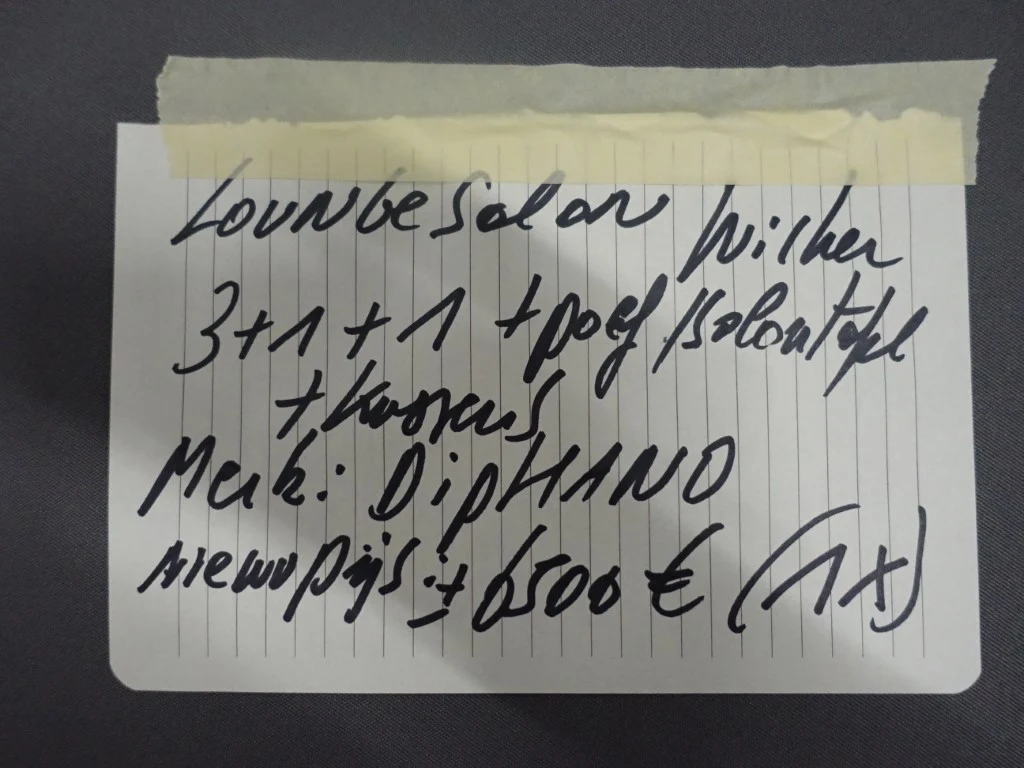 LOUNGE Salon Wicker
3+1+1 + poef /salontafel
+ kussens
Merk: DipHANO
Nieuwprijs: ± 6500 € (1x)